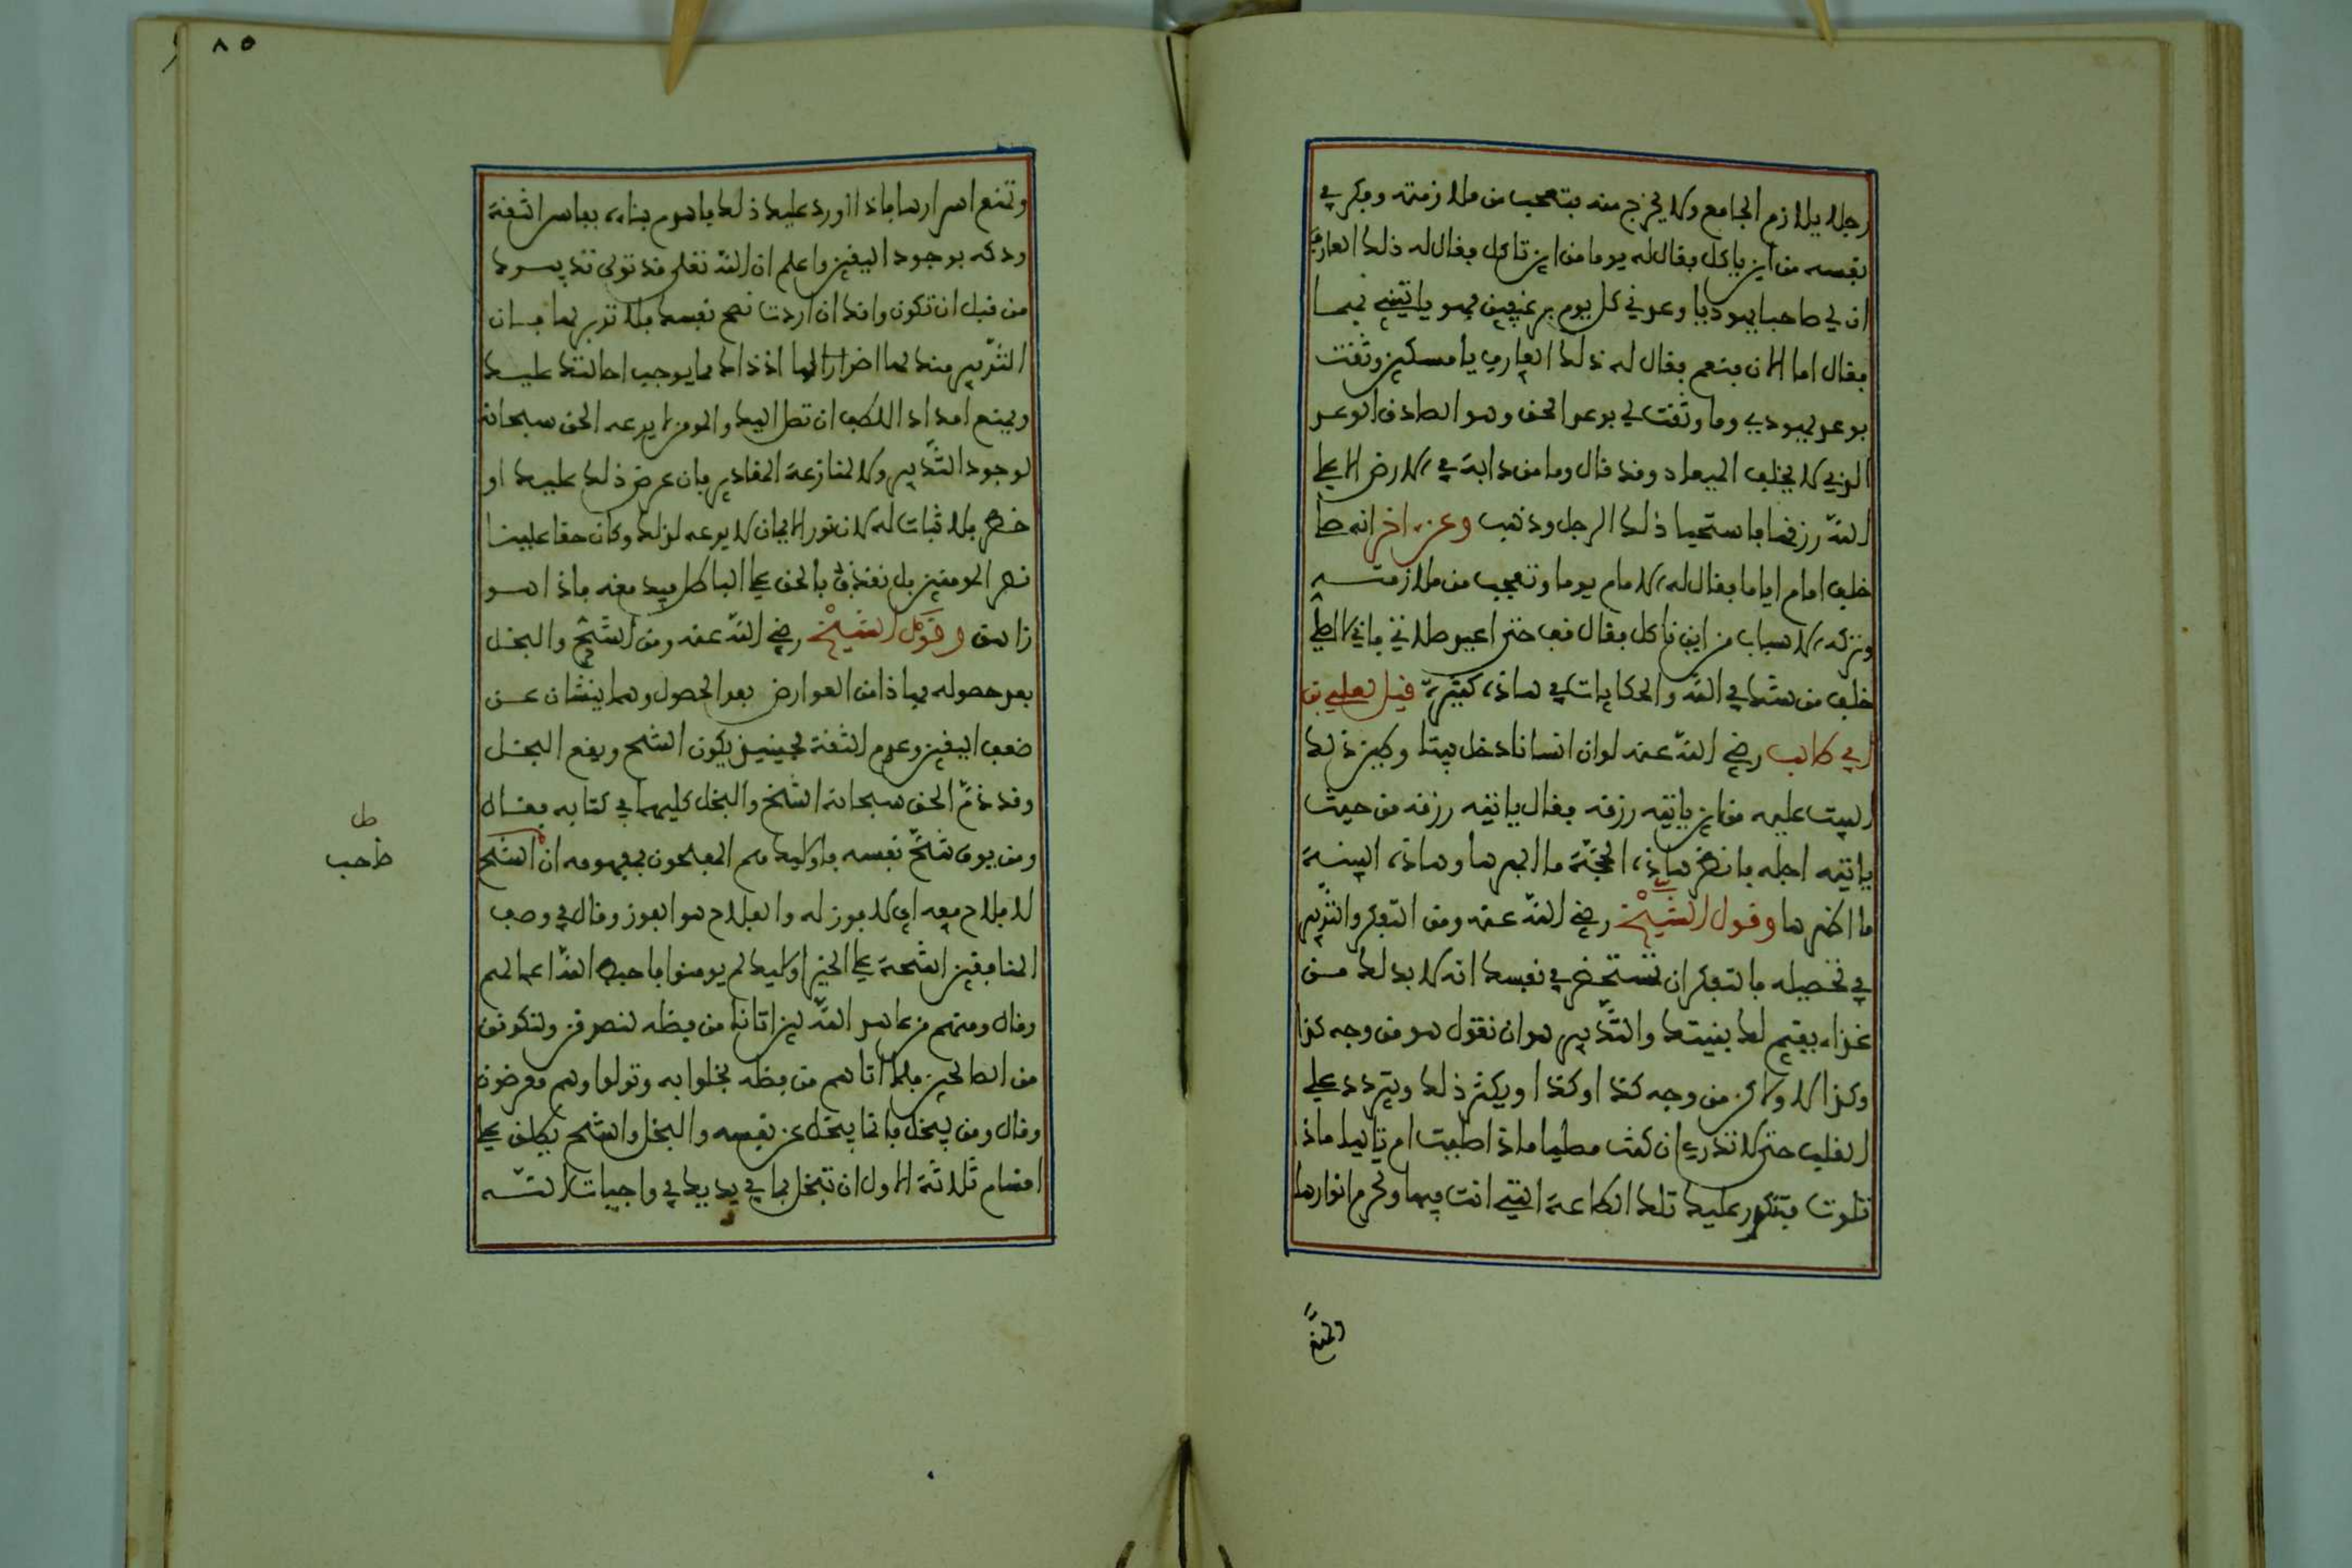 رجلا يلازم الجامع ولا يخرج منه فتعجب من ملازمته وفكر في
نفسه من أين ياكل فقال له يوما من اين تاكل فقال له ذلك العارف
ان لي صاحبا يهوديا وعدني كل يوم برغيفين فهو ياتيني بهما
فقال اما الان فنعم فقال له ذلك العارف يا مسكين وثقت
بوعد يهودي وما وثقت لي بوعد الحق وهو الصادق الوعد
الذي لا يخلف الميعاد وقد قال وما من دابة في الارض الا على
الله رزقها فاستحيا ذلك الرجل وذهب وعن اخر انه صلى
خلف امام اياما فقال له الامام يوما وتعجب من ملازمته
وتركه الاسباب من اين تاكل فقال قف حتى اعيد صلاتي فاني لا اصلي
خلف من شك في الله والحكايات في هاذا كثيرة قيل لعلي بن
ابي طالب رضي الله عنه لو ان انسانا دخل بيتا وطين ذلك
البيت عليه من اين ياتيه رزقه فقال ياتيه رزقه من حيث
ياتيه اجله فانظر هاذه الحجة ما ابهرها وهاذه البينة
ما اظهرها وقول الشيخ رضي الله عنه ومن التفكر والتدبير
في تحصيله فالتفكر ان تستحضر في نفسك انه لا بد لك من
غذاء يقيم لك بنيتك والتدبير هو ان تقول هو من وجه كذا
وكذا الا ولاكن من وجه كذا او كذا ويكثر ذلك ويتردد على
القلب حتى لا تدري ان كنت مصليا ماذا صليت ام تاليا ماذا
تلوت فتتكدر عليك تلك الطاعة التي انت فيها وتحرم انوارها
وتمنع
وتمنع اسرارها فاذا ورد عليك ذلك فاهدم بناءه بفاس الثقة
ودكه بوجود اليقين واعلم ان الله تعلى قد تولى تدبيرك
من قبل ان تكون وانك ان اردت نصح نفسك فلا تدبر لها فان
التدبير منك لها اضرار بها اذ ذاك مما يوجب احالتك عليك
ويمنع امداد اللطف ان تصل اليك والمومن لا يدعه الحق سبحانه
لوجود التدبير ولا لمنازعة المقادير فان عرض ذلك عليك او
خطر فلا ثبات له لان نور الايمان لا يدعه لذلك وكان حقا علينا
نصر المومنين بل نقذف بالحق على الباطل فيدمغه فاذا هو
زاهق وقول الشيخ رضي الله عنه ومن الشح والبخل
بعد حصوله فهاذا من العوارض بعد الحصول وهما ينشان عن
ضعف اليقين وعدم الثقة فحينئذ يكون الشح ويقع البخل
وقد ذم الحق سبحانه الشح والبخل كليهما في كتابه فقال
ومن يوق شح نفسه فاولئك هم المفلحون فمفهومه ان الشح
صاحب
لا فلاح معه اي لا فوز له والفلاح هو الفوز وقال في وصف
المنافقين اشحة على الخير اولئك لم يومنوا فاحبط الله اعمالهم
وقال ومنهم من عاهد الله لئن اتانا من فضله لنصدقن ولنكونن
من الصالحين فلما اتاهم من فضله بخلوا به وتولوا وهم معرضون
وقال ومن يبخل فانما يبخل عن نفسه والبخل والشح يطلق على
اقسام ثلاثة الاول ان تبخل بما في يديك في واجبات الله
٨٥